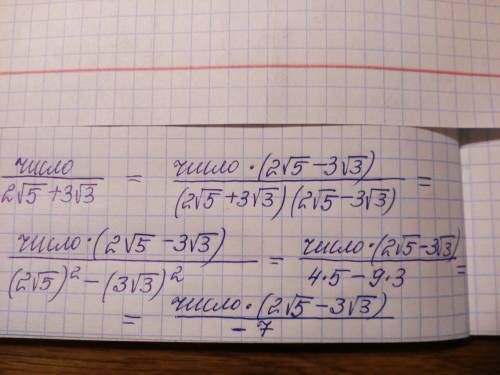 число / 2√5 + 3√3 = число · (2√5 - 3√3) / (2√5 + 3√3) (2√5 - 3√3) =
число · (2√5 - 3√3) / (2√5)² - (3√3)² = число · (2√5 - 3√3) / 4·5 - 9·3 =
= число · (2√5 - 3√3) / - 7